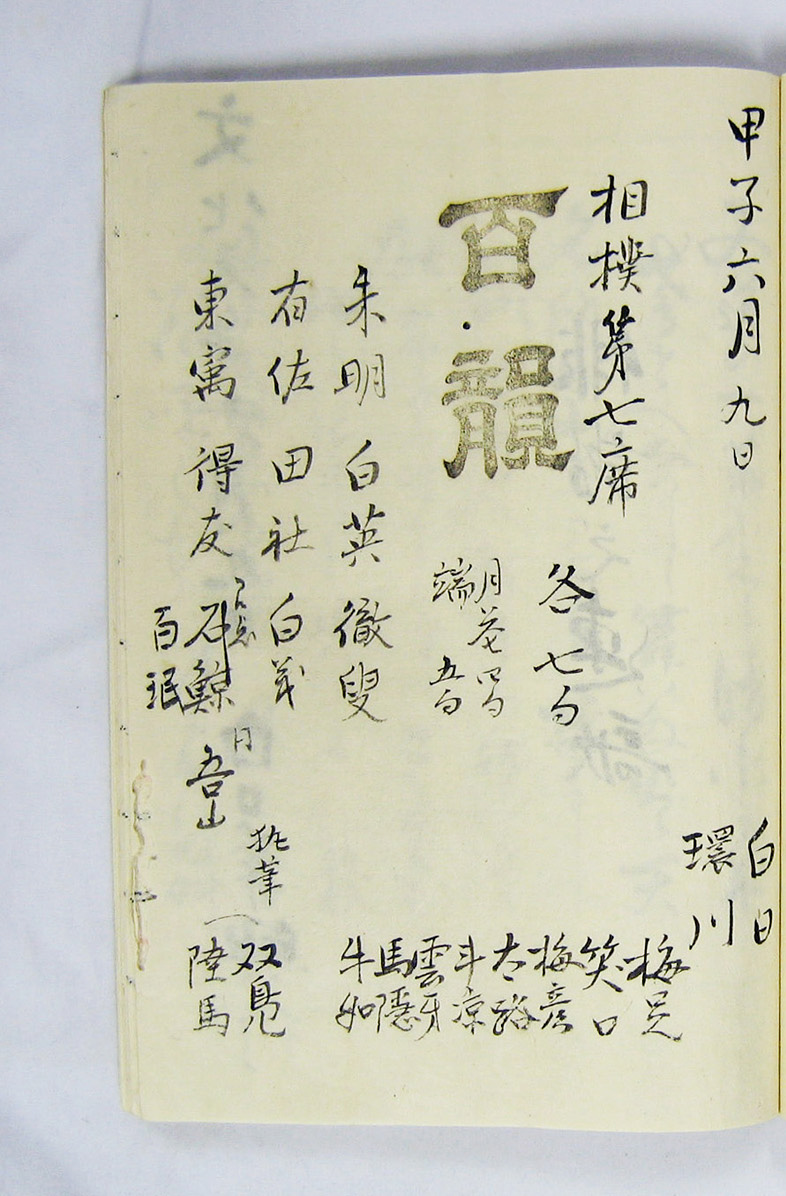 甲子六月九日
白日
環川
相撲第七席
百韻
各七句
月花四句
端五句
朱明 白英 徹叟
有佐 田社 白義
東寓 得友 石鯨 吾山
百珉
執筆
梅
笑口
梅彦
太路
斗涼
雲牙
馬隠
牛如
双鳧
陸馬